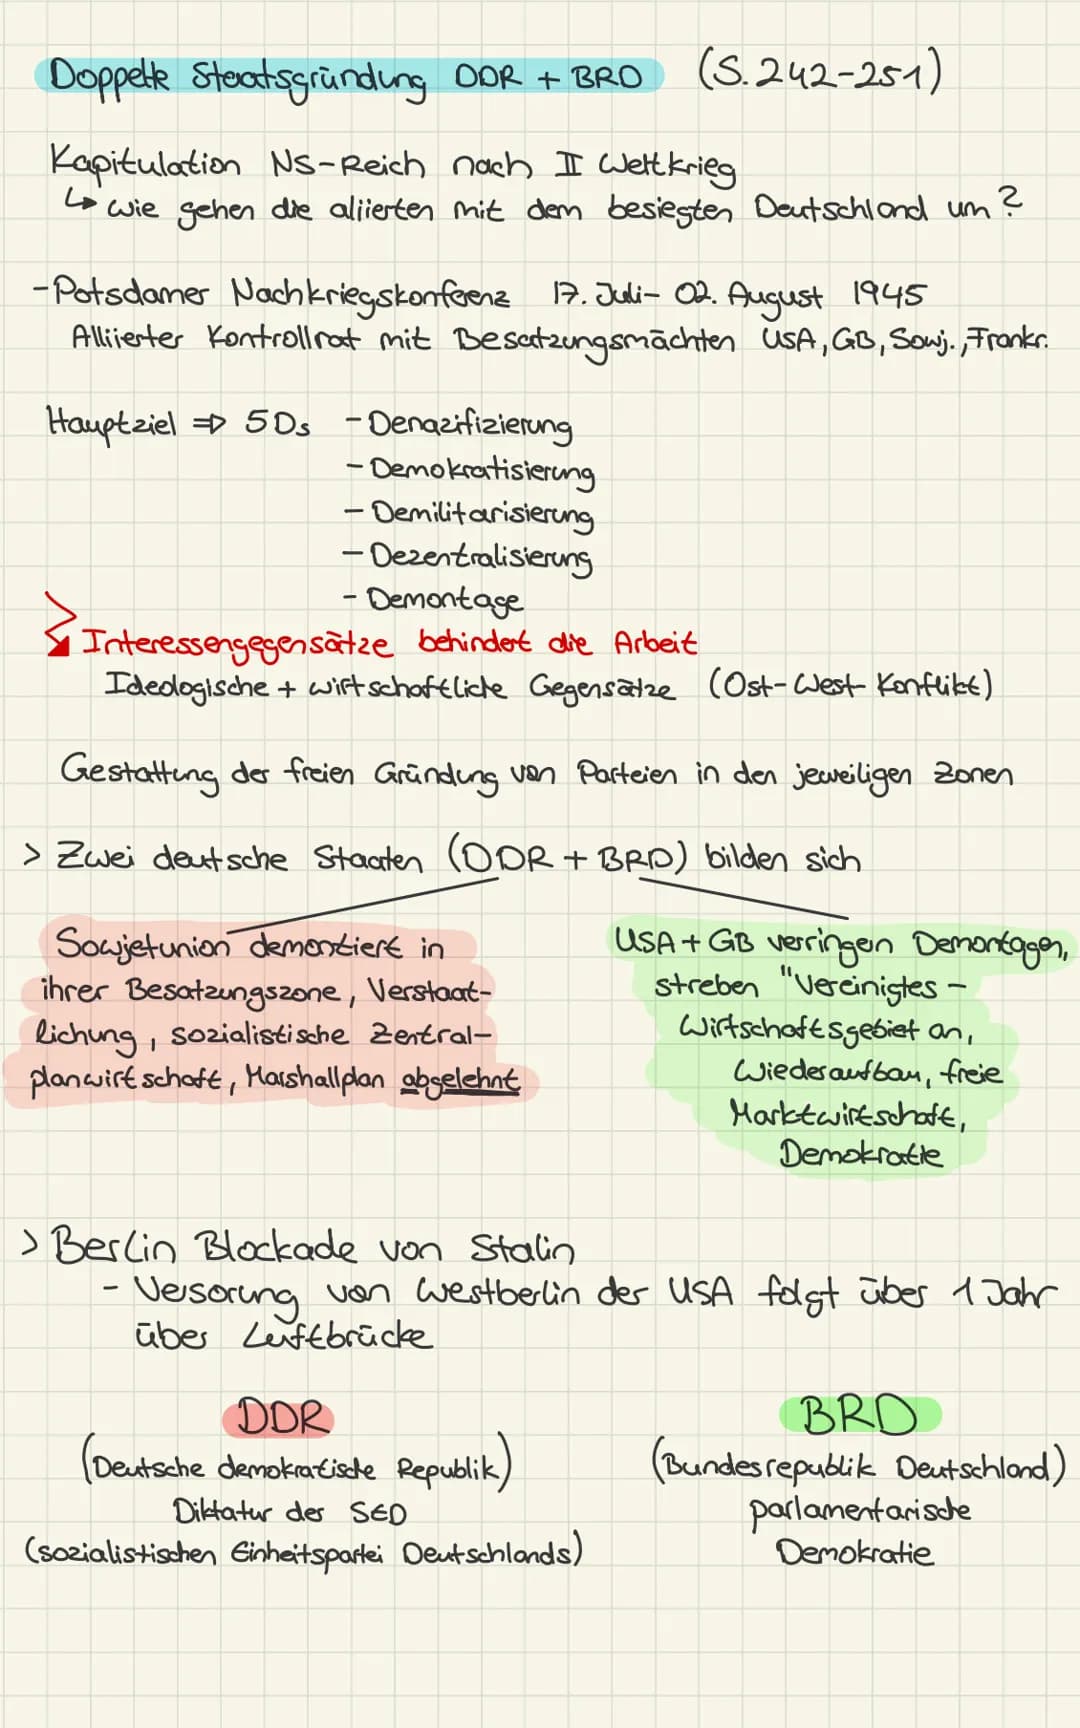 Doppelte Staatsgründung DDR + BRD (S. 242-251)
Kapitulation NS-Reich nach II Weltkrieg
↳ wie gehen die aliierten mit dem besiegten Deutschland um?
- Potsdamer Nachkriegskonferenz 17. Juli - 02. August 1945
Alliierter Kontrollrat mit Besatzungsmächten USA, GB, Sowj., Frankr.
Hauptziel ⇒ 5 Ds - Denazifizierung
- Demokratisierung
- Demilitarisierung
- Dezentralisierung
- Demontage
Interessengegensätze behindert die Arbeit
Ideologische + wirtschaftliche Gegensätze (Ost-West-Konflikt)
Gestattung der freien Gründung von Parteien in den jeweiligen Zonen
> Zwei deutsche Staaten (DDR + BRD) bilden sich
Sowjetunion demontiert in
ihrer Besatzungszone, Verstaat-
lichung, sozialistische Zentral-
planwirtschaft, Marshallplan abgelehnt
USA + GB verringern Demontagen,
streben "Vereinigtes -
Wirtschaftsgebiet an,
Wiederaufbau, freie
Marktwirtschaft,
Demokratie
> Berlin Blockade von Stalin
- Versorung von Westberlin der USA folgt über 1 Jahr
über Luftbrücke
DDR
(Deutsche demokratische Republik)
Diktatur der SED
(sozialistischen Einheitspartei Deutschlands)
BRD
(Bundesrepublik Deutschland)
parlamentarische
Demokratie